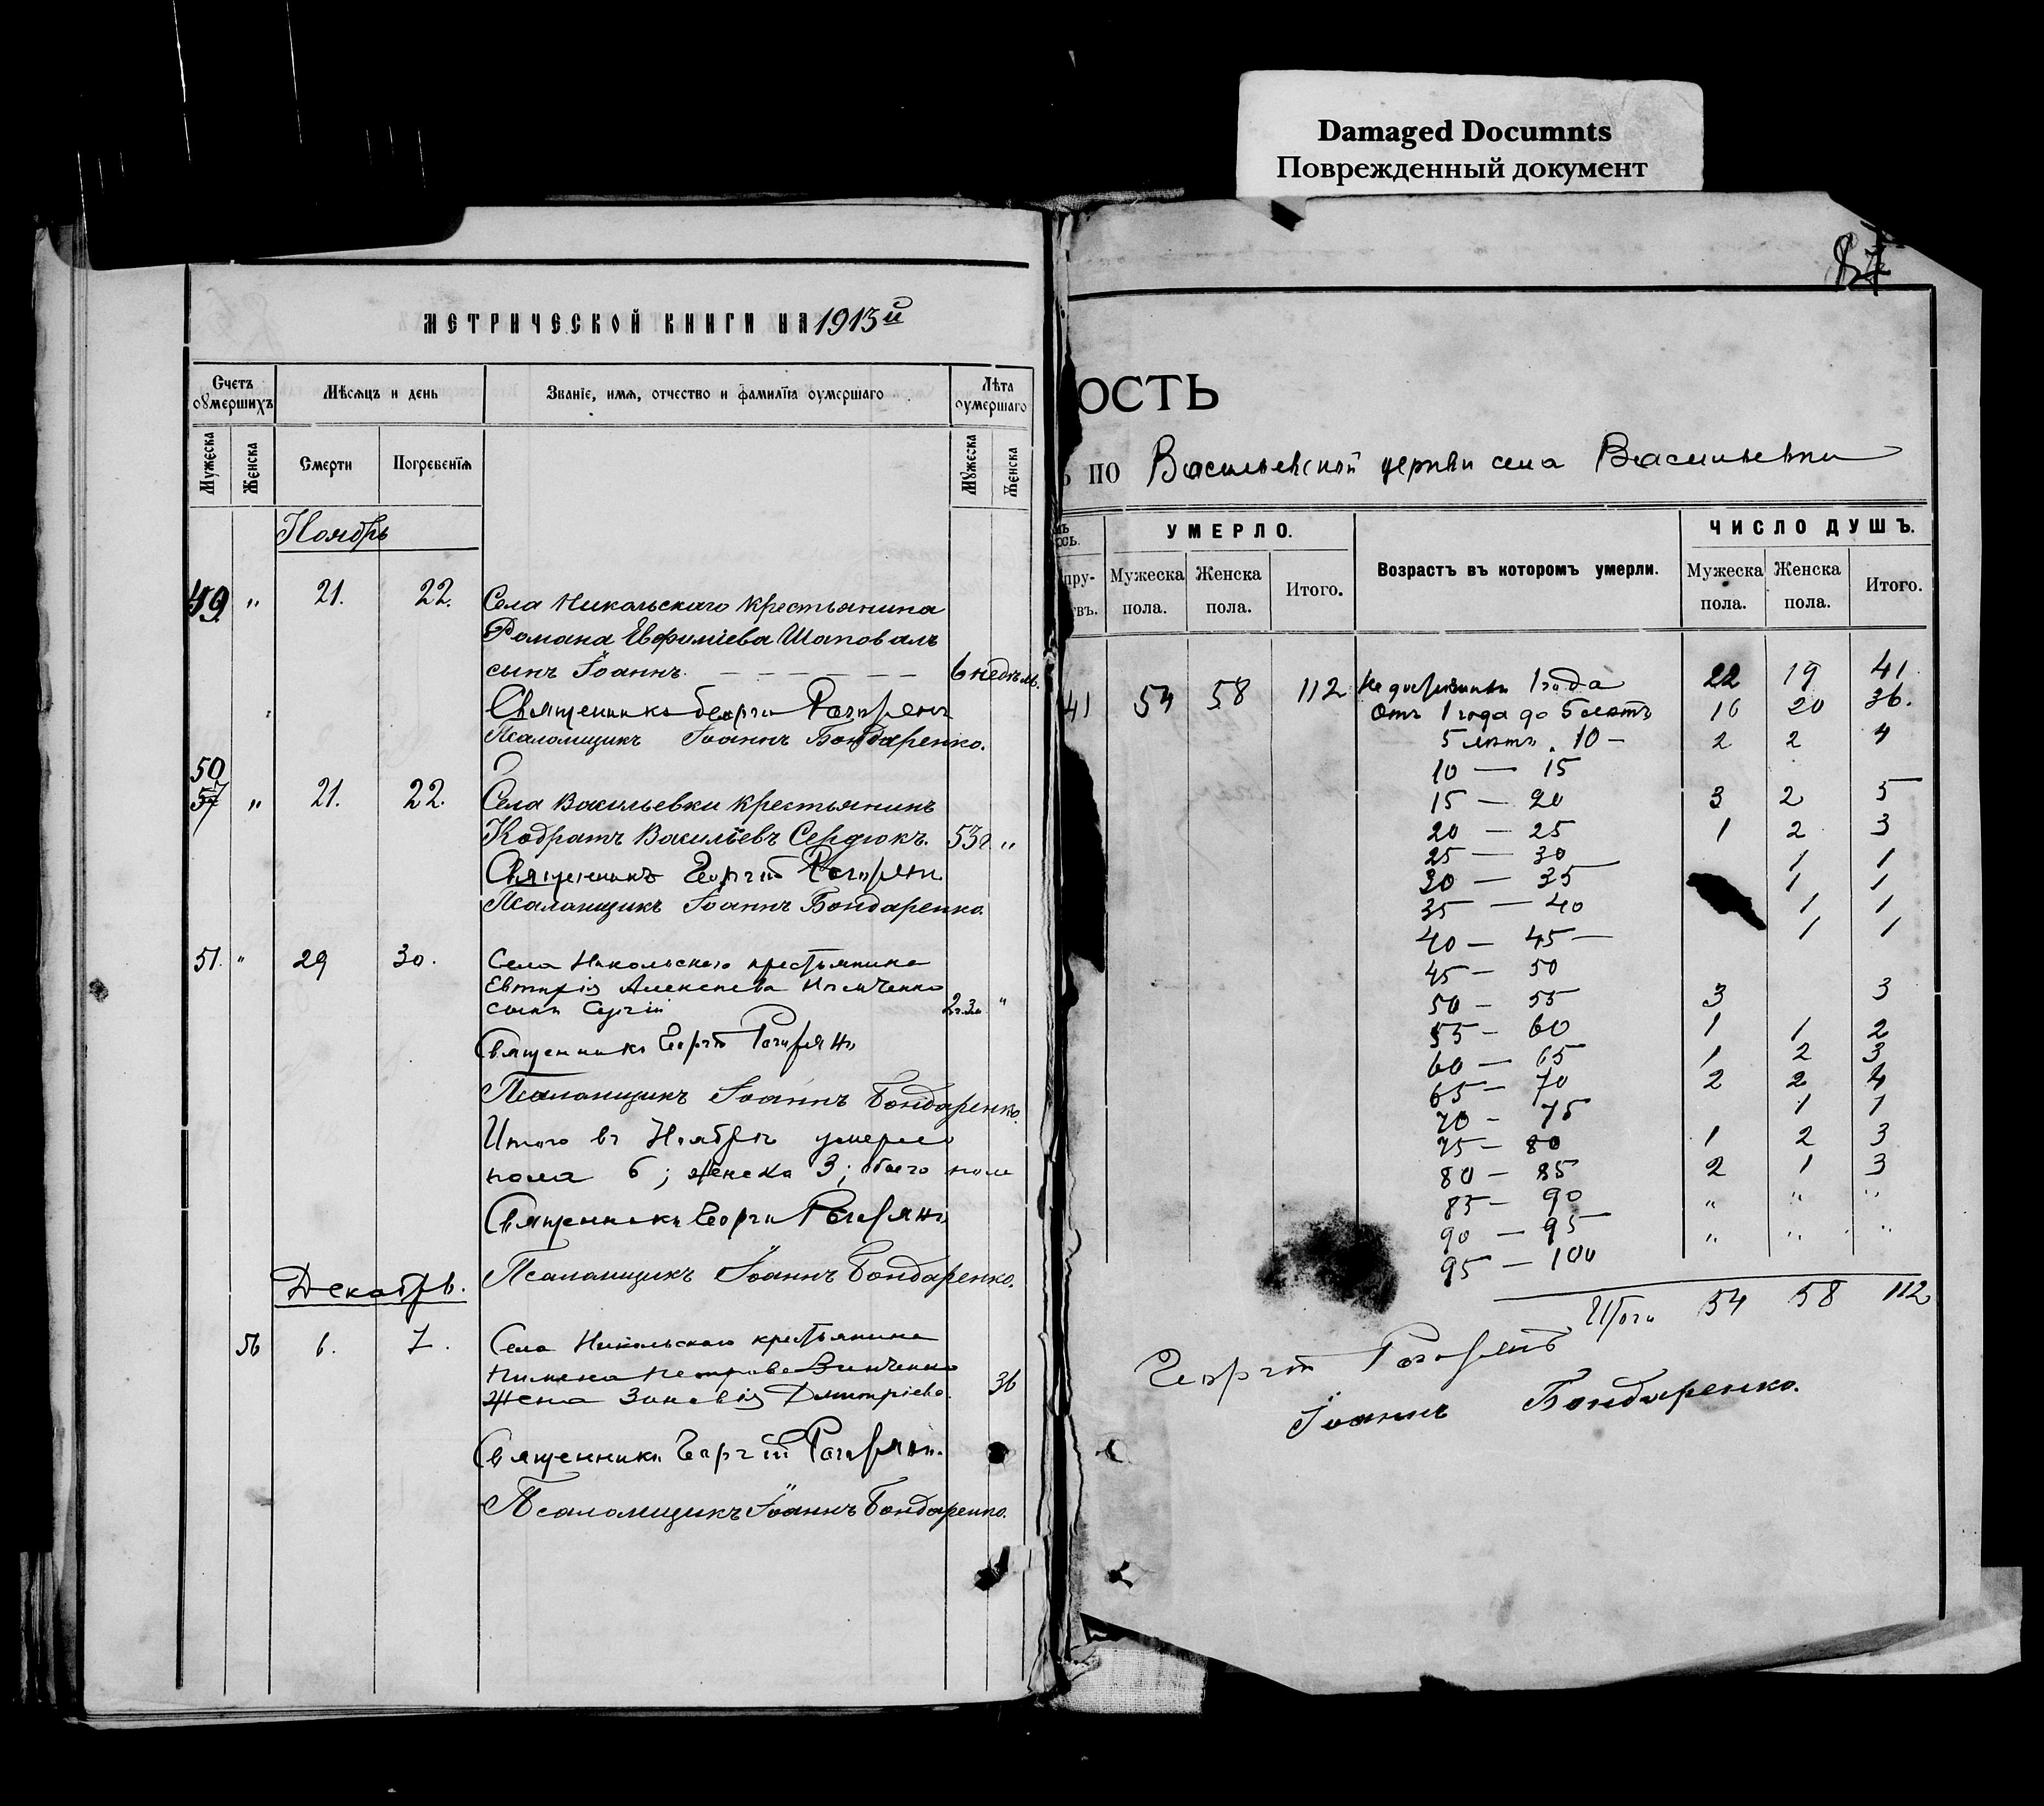 Damaged Documnts
Поврежденный документ
87
МЕТРИЧЕСКОЙ КНИГИ НА 1913й
Счетъ оумершихъ
Мѣсяцъ и день
Званіе, имя, отчество и фамилія оумершаго
Лѣта оумершаго
Мужеска
Женска
Смерти
Погребенія
Мужеска
Женска
Ноябрь
49 " 21. 22. Села Никольскаго крестьянина
Романа Евфиміева Шаповалъ
сынъ Іоаннъ. — — — — — — 6 недѣль.
Священникъ Георгій
Псаломщикъ Іоаннъ Бондаренко.
50
57 " 21. 22. Села Васильевки крестьянинъ
Кодратъ Васильевъ Сердюкъ. 53 г "
Священникъ Георгій
Псаломщикъ Іоаннъ Бондаренко.
51. " 29 30. Села Никольскаго крестьянина
Алексѣева
сынъ Сергій "
Священникъ Георгій
Псаломщикъ Іоаннъ Бондаренко.
Итого въ Ноябрѣ умерло
пола 6; женска 3; обоего пола
Священникъ Георгій
Псаломщикъ Іоаннъ Бондаренко.
Декабрь.
56 6. 7. Села Никольскаго крестьянина
Пимена Петрова Зинченко
жена Зиновія Дмитріева. 36
Священникъ Георгій
Псаломщикъ Іоаннъ Бондаренко.
ОСТЬ
ПО Васильевской церкви села Васильевки
УМЕРЛО.
Возрастъ въ которомъ умерли.
ЧИСЛО ДУШЪ.
Мужеска пола.
Женска пола.
Итого.
Мужеска пола.
Женска пола.
Итого.
41 54 58 112 Не дожившихъ 1 года 22 19 41
Отъ 1 года до 5 лѣтъ 16 20 36.
5 лѣтъ . 10 — 2 2 4
10 — 15
15 — 20 3 2 5
20 — 25 1 2 3
25 — 30 1 1
30 — 35 1 1
35 — 40 1 1
40 — 45 — 1 1
45 — 50
50 — 55 3 3
55 — 60 1 1 2
60 — 65 1 2 3
65 — 70 2 2 4
70 — 75 1 1
75 — 80 1 2 3
80 — 85 2 1 3
85 — 90 " " "
90 — 95 " " "
95 — 100
Итого 54 58 112
Георгій
Іоаннъ Бондаренко.